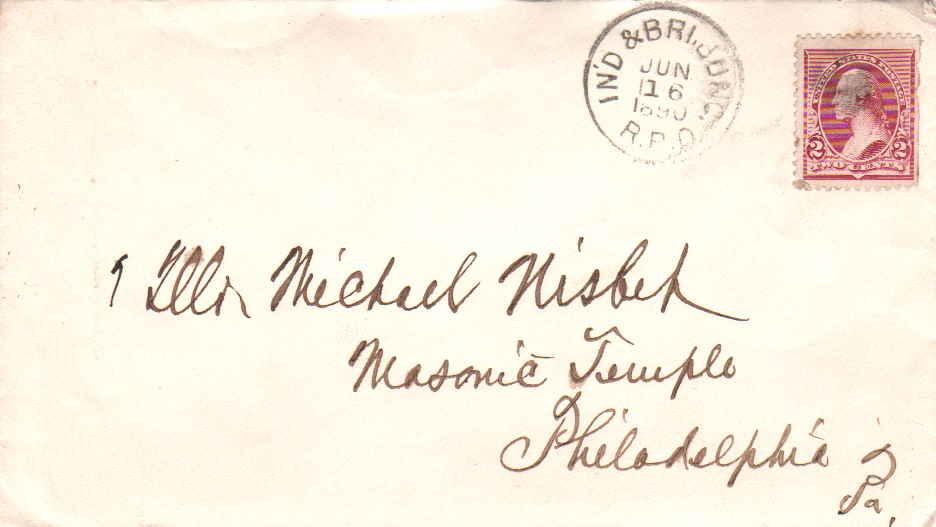 IN'D & BRI. JUNC.
JUN
16
1890
R.P.O.
UNITED STATES POSTAGE
2 2
TWO CENTS
Michael Nisbet
Masonic Temple
Philadelphia
Pa.